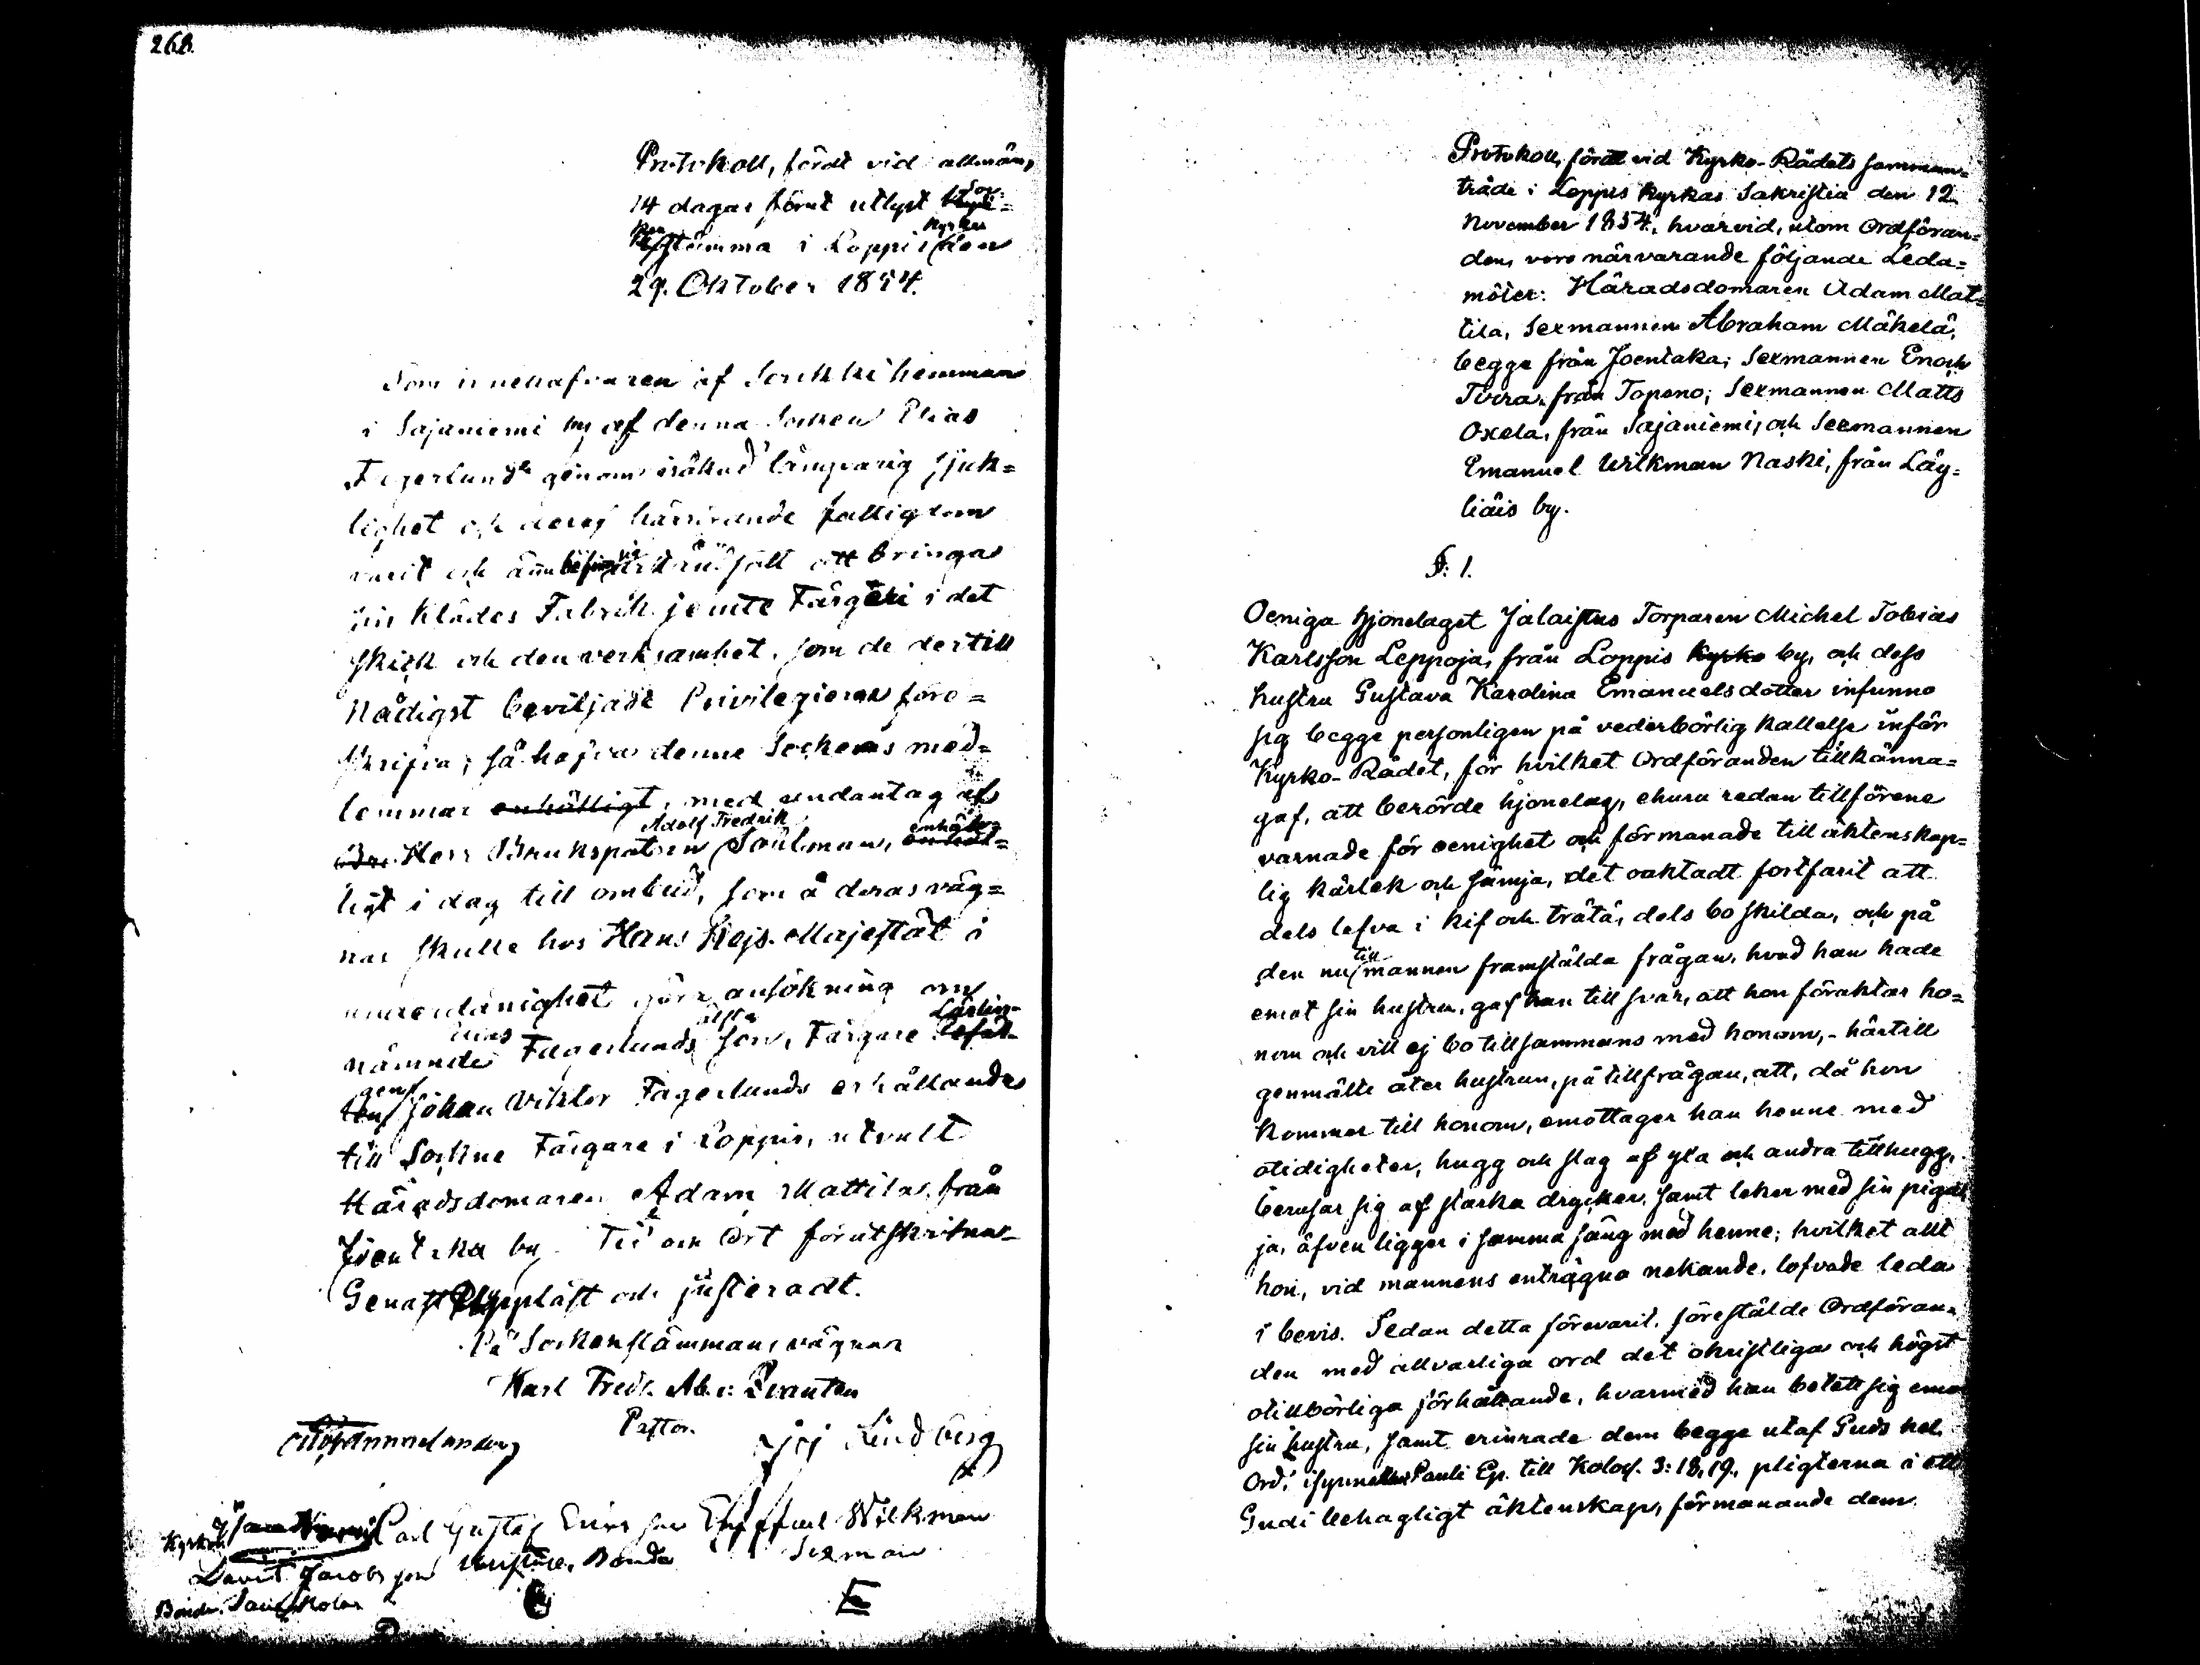 268.
Protokoll, fördt vid allmän,
14 dagar förut utlyst Soc=
ken stämma i Loppi kyrka den
29. Oktober 1854.
Som innehafvaren af Sorkki hemman
i Sajaniemi by af denna Socken Elias
Fagerlund genom iråkad långvarig sjuk=
lighet och deraf härrörande fattigdom
varit och ännu är ur stånd satt att bringa
sin Klädes Fabrik jemte Färgeri i det
skick och den verksamhet, som de dertill
Nådigst beviljade Privilegierna före=
skrifva; så hafva denne Sockens med=
lemmar enhälligt, med undantag af
Herr Brukspatron Adolf Fredrik Soulman, enhäl=
ligt i dag till ombud, som å deras väg=
nar skulle hos Hans Kejs. Majestät i
underdånighet göra ansökning om
nämnde Fagerlunds äldsta son, Färgare Lärlin-
gen Johan Viktor Fagerlunds erhållande
till Sockne Färgare i Loppis, utvalt
Häradsdomaren Adam Mattila, från
Joentaka by. Tid och Ort förutskrifna
Genast uppläst och justeradt.
På Sockenstämmans vägnar
Karl Fredr. Ab:r: Kranten
Pastor.
Lindberg
Carl Gustaf Ericsson Wilkman
Davit Jacobsson Bonde Sexman
Bonde
Protokoll, fördt vid Kyrko-Rådets samman=
träde i Loppis Kyrkas Sakristia den 12
November 1854, hvarvid, utom Ordföran=
den, voro närvarande följande Leda=
möter: Häradsdomaren Adam Mat=
tila, Sexmannen Abraham Mäkelä,
begge från Joentaka; Sexmannen Enoch
Tirra, från Topeno; Sexmannen Matts
Oxela, från Sajaniemi; och Sexmannen
Emanuel Wilkman Naski, från Läy=
liäis by.
§: 1.
Oeniga hjonelaget Jalaistus Torparen Michel Tobias
Karlsson Leppoja, från Loppis Kyrko by, och dess
hustru Gustava Karolina Emanuelsdotter infunno
sig begge personligen på vederbörlig kallelse inför
Kyrko-Rådet, för hvilket Ordföranden tillkänna=
gaf, att berörde hjonelag, ehuru redan tillförene
varnade för oenighet och förmanade till äktenskap=
lig kärlek och sämja, det oaktadt fortfarit att
dels lefva i kif och träta, dels bo skilda, och på
den nu till mannen framställda frågan, hvad han hade
emot sin hustru, gaf han till svar, att hon föraktar ho=
nom och vill ej bo tillsammans med honom, - härtill
genmälte åter hustrun, på tillfrågan, att, då hon
kommer till honom, emottager han henne med
otidigheter, hugg och slag af yxa och andra tillhugg,
berusar sig af starka drycker, samt leker med sin piga,
ja, äfven ligger i samma säng med henne; hvilket allt
hon, vid mannens enträgna nekande, lofvade leda
i bevis. Sedan detta förevarit, förestälde Ordföran=
den med allvarliga ord det okristliga och högst
otillbörliga förhållande, hvarmed han betett sig emot
sin hustru, samt erinrade dem begge utaf Guds hel.
Ord, isynnerhet Pauli Ep. till Kolos. 3: 18, 19, pligterna i ett
Gudi behagligt äktenskap, förmanande dem